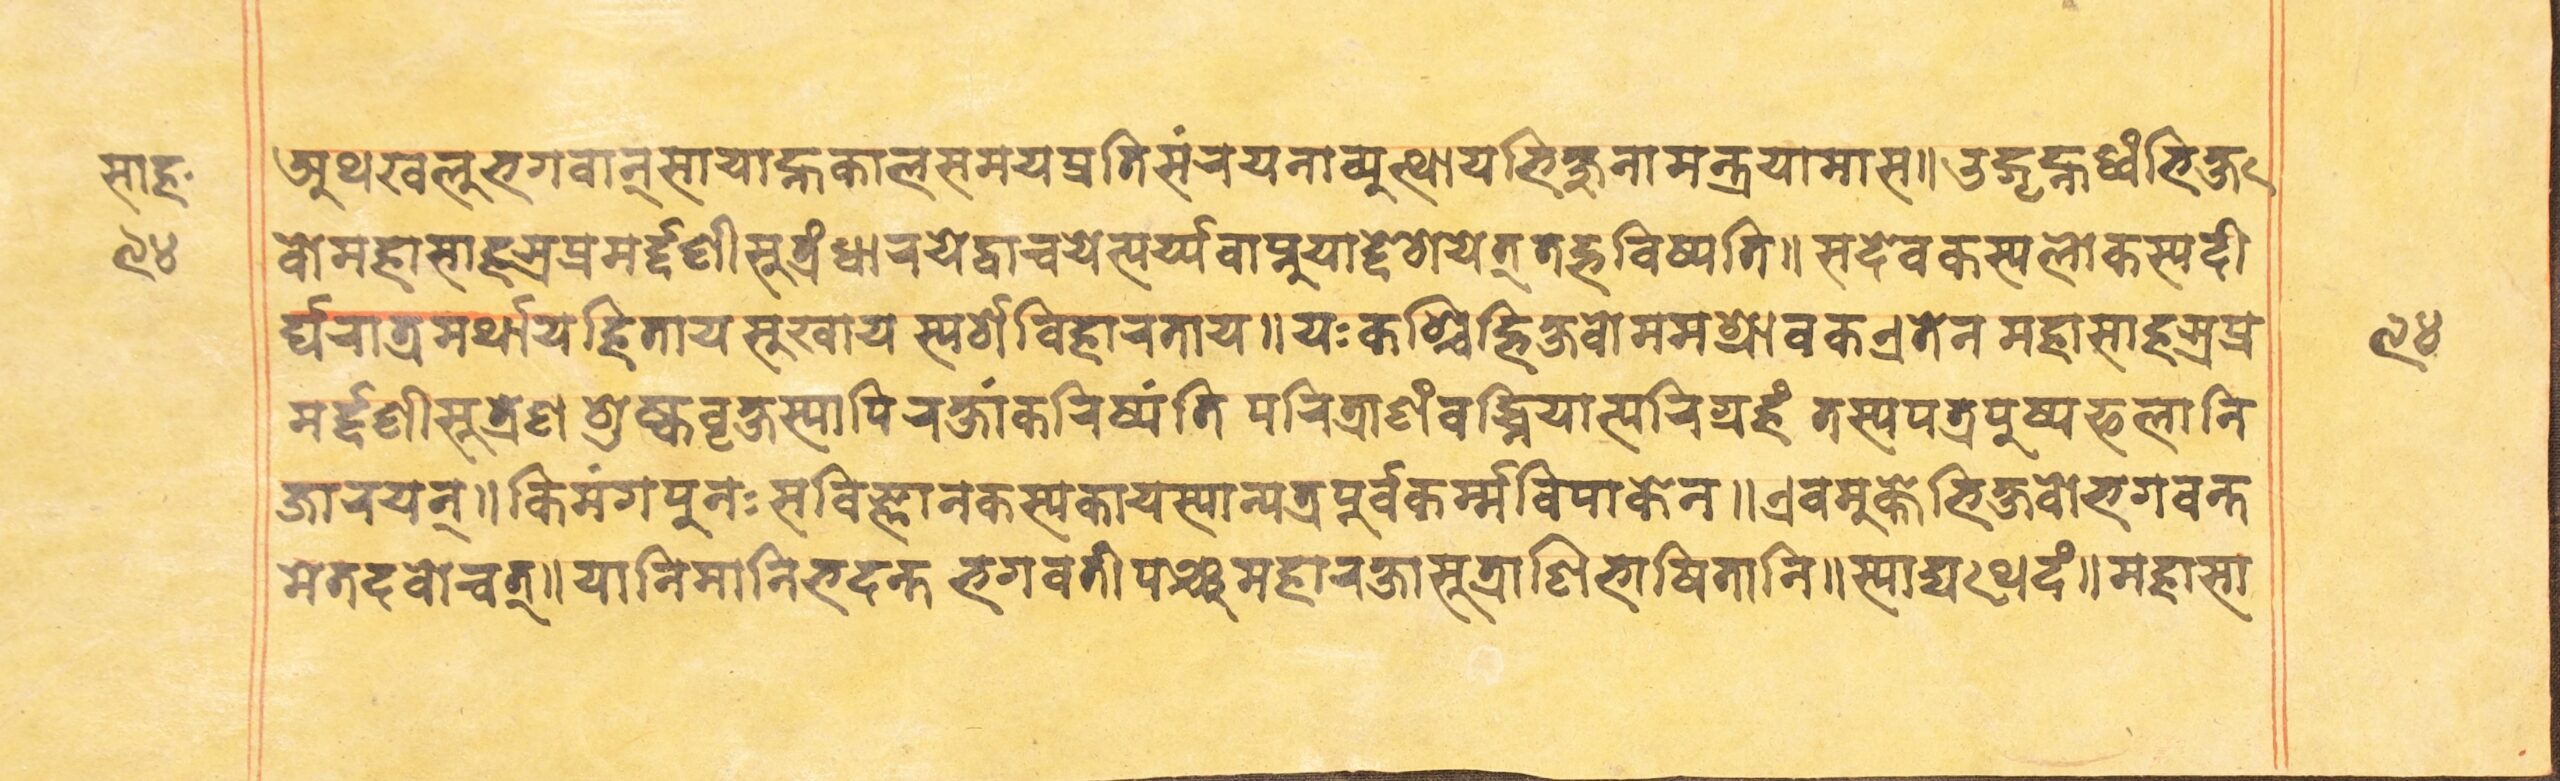 साह॰
९४
अथखलुभगवान्सायाह्नकालसमयप्रतिसंरयनाव्युत्थायभिक्षुनामन्त्रयामास॥उद्गृह्नध्वंभिक्ष
वोमहासाहस्रप्रमर्द्दणीसुत्रंध्वारयेद्वाचयेत्पर्य्यवाप्नुयाद्देशयेत्तद्भविष्यति॥सदेवकस्यलोकस्यदी
र्घ्घरात्रमर्थायहितायसुखायस्पर्शविहारताय॥यःकश्चिद्भिक्षवोममश्रावकएतेनमहासाहस्रप्र
मर्द्दणीसूत्रेणशुष्कवृक्षस्यापिरक्षांकरिष्यंतिपरित्राणंवद्धियात्परिग्रहंतस्यपत्रपुष्पफलानि
जारयन्॥किमंगपुनःसविज्ञानकस्यकायस्यान्यत्रपूर्वकर्म्मविपाकेन॥एवमुक्तेभिक्षवोभगवन्त
मेतदवोचत्॥यानिमानिभदन्तभगवतीपञ्चमहारक्षासूत्राणिभाषितानि॥स्याद्यथेदं॥महासा
९४